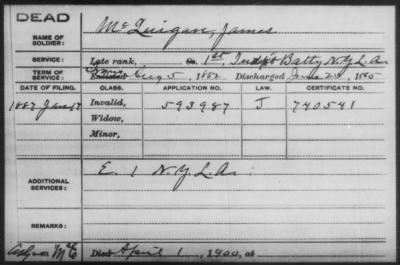 DEAD
NAME OF SOLDIER: McQuigan, James
SERVICE: Late rank, Co. 1st, Indp't Batty N.Y.L.A.
TERM OF SERVICE: Enlisted Aug 5, 1862 Discharged June 23, 1865
DATE OF FILING. CLASS. APPLICATION NO. LAW. CERTIFICATE NO.
1887 Jan 17 Invalid, 593987 J 740541
Widow,
Minor,
ADDITIONAL SERVICES: E. 1 N.Y.L.A.
REMARKS:
Died April 1, 1900, at